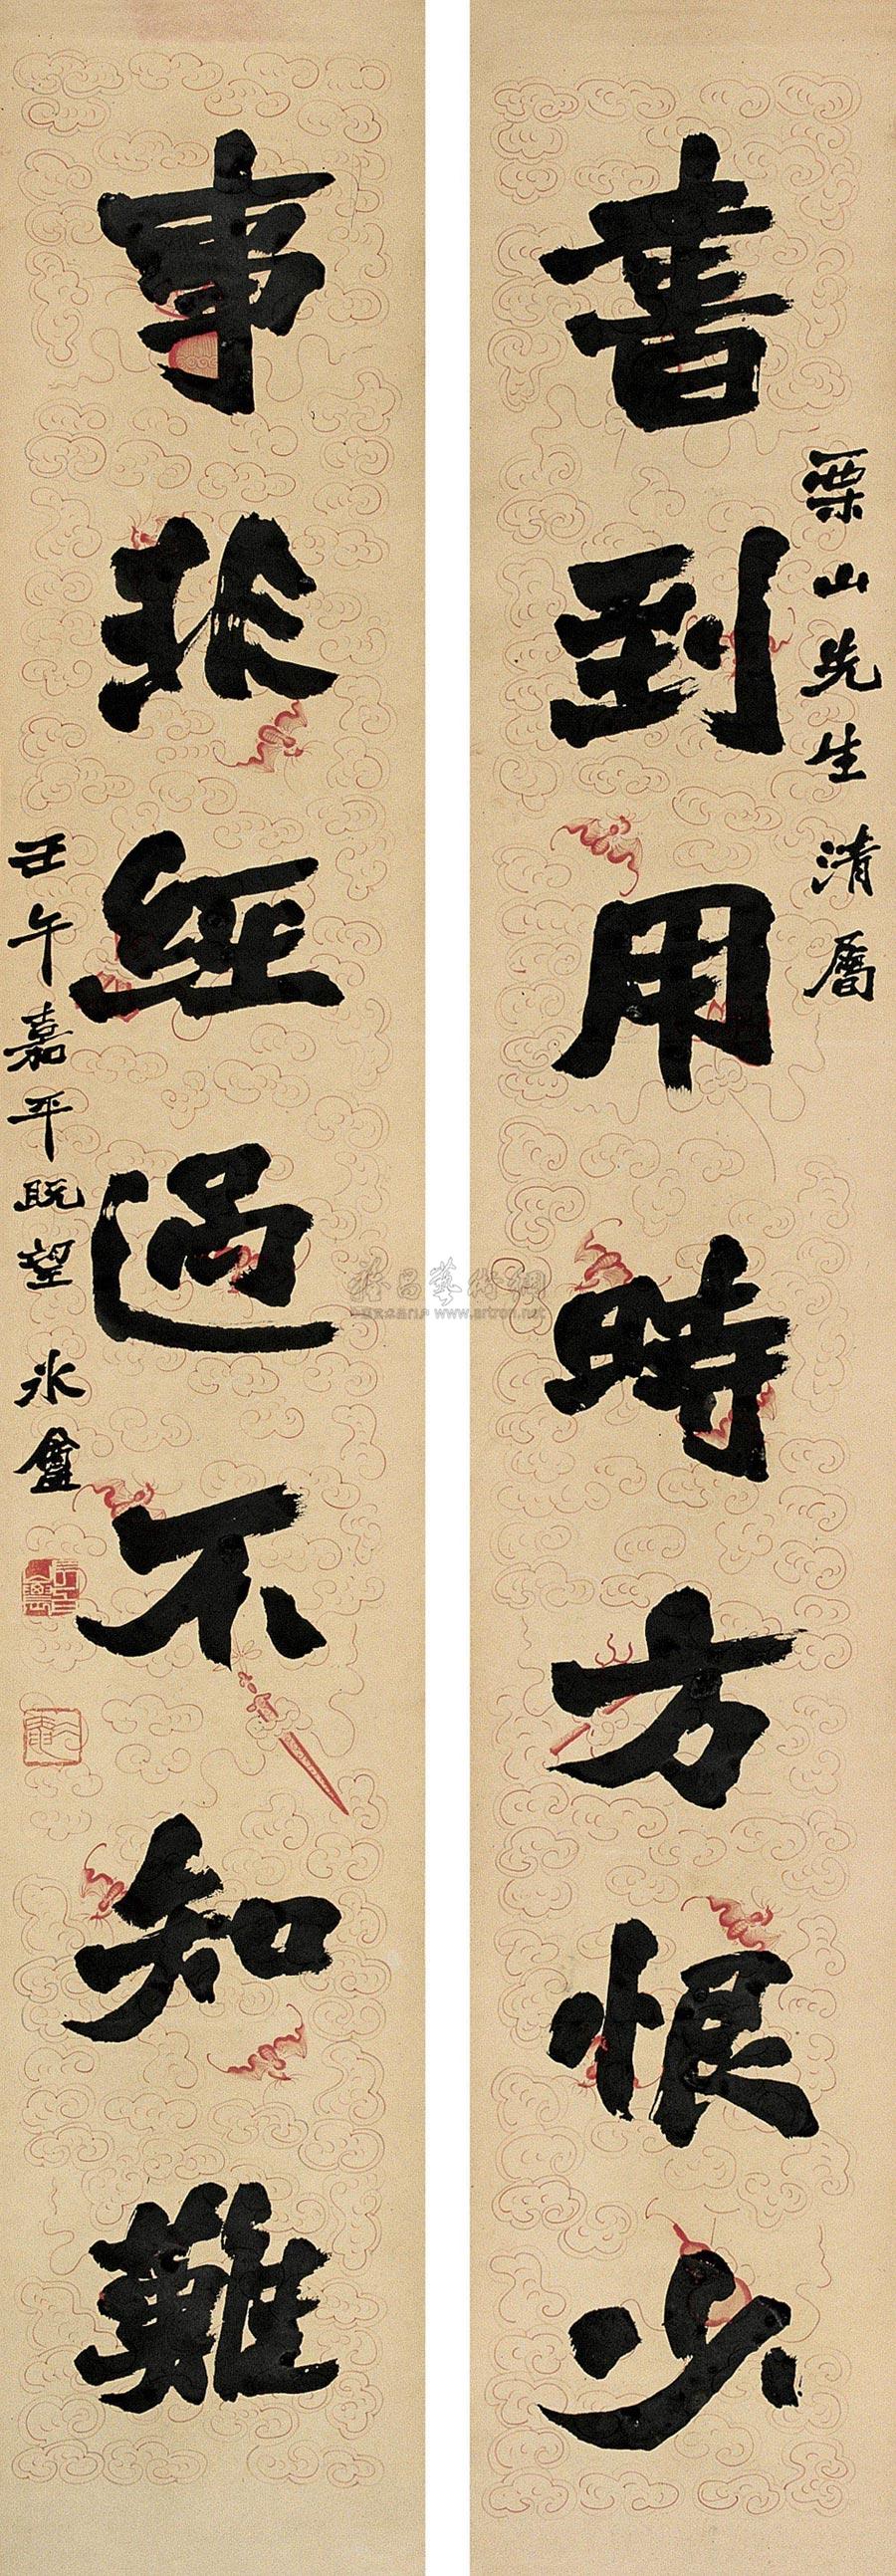 栗山先生清屬
書到用時方恨少
事非經過不知難
壬午嘉平既望 冰盦
www.artron.net